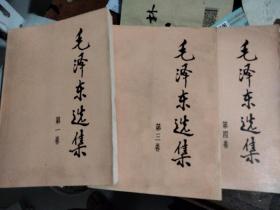 毛泽东选集
第一卷
毛泽东选集
第三卷
毛泽东选集
第四卷